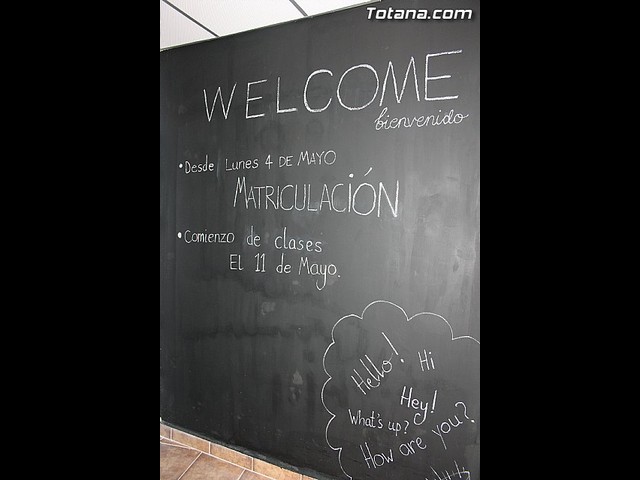 Totana.com
WELCOME
bienvenido
• Desde Lunes 4 DE MAYO
MATRICULACIÓN
• Comienzo de clases
El 11 de Mayo.
Hello! Hi
Hey!
What's up?
How are you?